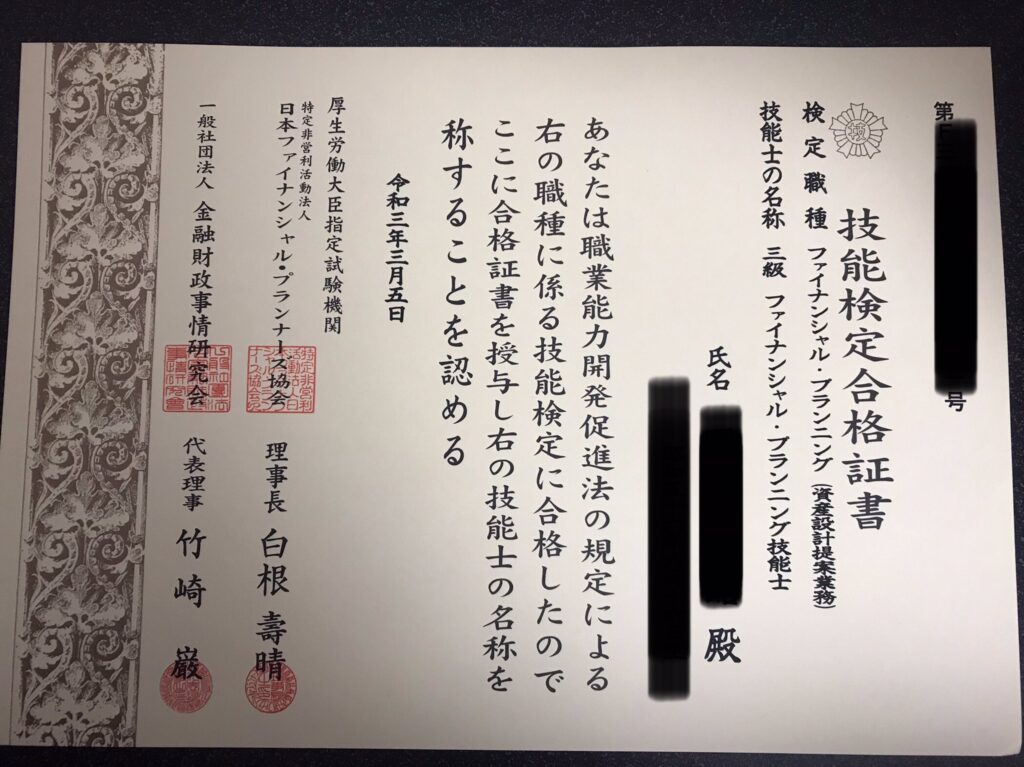 第
号
技能検定合格証書
検定職種 ファイナンシャル・プランニング(資産設計提案業務)
技能士の名称 三級 ファイナンシャル・プランニング技能士
氏名 殿
あなたは職業能力開発促進法の規定による
右の職種に係る技能検定に合格したので
ここに合格証書を授与し右の技能士の名称を
称することを認める
令和三年三月五日
厚生労働大臣指定試験機関
特定非営利活動法人
日本ファイナンシャル・プランナーズ協会 理事長 白根 壽晴
一般社団法人 金融財政事情研究会 代表理事 竹崎 巌